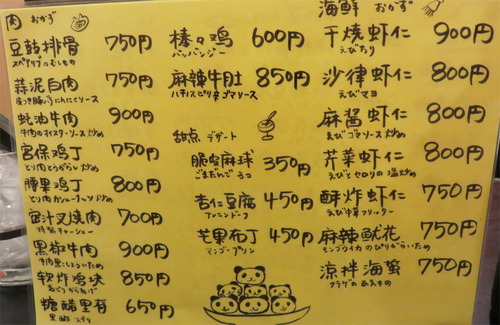 肉 おかず
豆鼓排骨 750円
スペアリブのむしもの
蒜泥白肉 750円
皮つき豚バラにんにくソース
蚝油牛肉 900円
牛肉のオイスターソース炒め
宮保鸡丁 750円
とり肉とうがらし炒め
腰果鸡丁 800円
とり肉カシューナッツ炒め
蜜汁叉焼肉 700円
特製チャーシュー
黒椒牛肉 900円
牛肉黒こしょういため
软炸鸡块 850円
若どりからあげ
糖醋里脊 650円
黒酢スブタ
棒々鸡 600円
バンバンジー
麻辣牛肚 850円
ハチノスピリ辛ゴマソース
甜点 デザート
脆皮麻球 350円
ごまだんご 3コ
杏仁豆腐 450円
アンニンドーフ
芒果布丁 450円
マンゴープリン
海鮮 おかず
干焼虾仁 900円
えびちり
沙律虾仁 800円
えびマヨ
麻酱虾仁 800円
えびゴマソース炒め
芹菜虾仁 800円
えびとセロリの塩炒め
酥炸虾仁 750円
えび中華フリッター
麻辣魷花 750円
モンゴウイカのぴりからいため
涼拌海蜇 750円
クラゲのあえもの